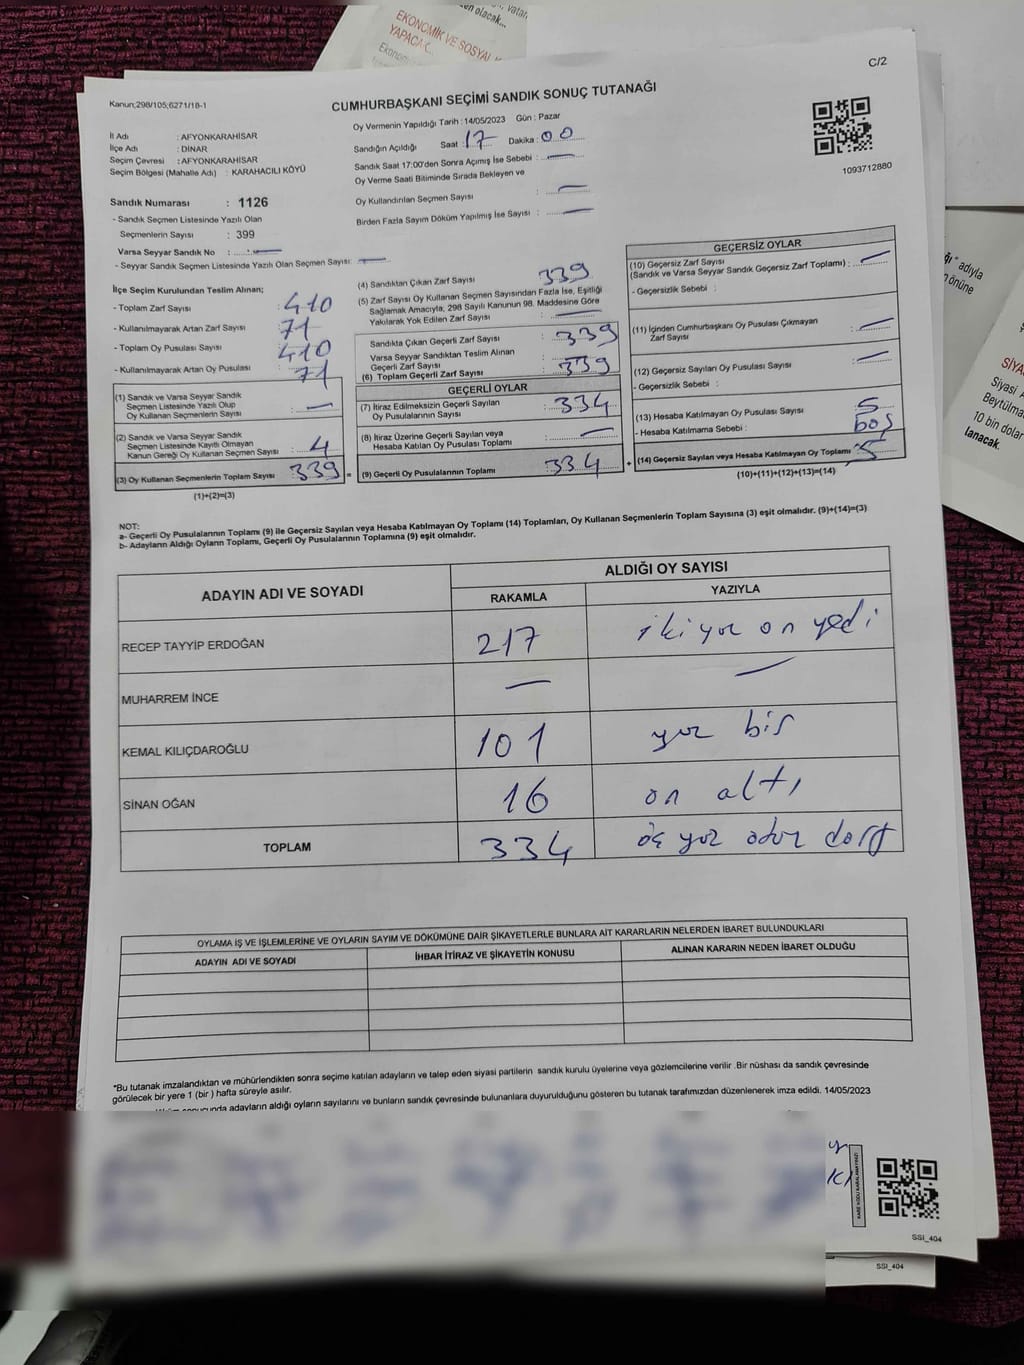 en olacak...
vatan
EKONOMİK VE SOSYAL
YAPACA
Ekonom
C/2
Kanun;298/105;6271/18-1
CUMHURBAŞKANI SEÇİMİ SANDIK SONUÇ TUTANAĞI
İl Adı : AFYONKARAHİSAR
İlçe Adı : DİNAR
Seçim Çevresi : AFYONKARAHİSAR
Seçim Bölgesi (Mahalle Adı) : KARAHACILI KÖYÜ
Sandık Numarası : 1126
- Sandık Seçmen Listesinde Yazılı Olan
Seçmenlerin Sayısı : 399
Varsa Seyyar Sandık No : —
- Seyyar Sandık Seçmen Listesinde Yazılı Olan Seçmen Sayısı: —
Oy Vermenin Yapıldığı Tarih : 14/05/2023 Gün : Pazar
Sandığın Açıldığı Saat : 17 Dakika : 00
Sandık Saat 17:00'den Sonra Açımış İse Sebebi : —
Oy Verme Saati Bitiminde Sırada Bekleyen ve
Oy Kullandırılan Seçmen Sayısı : —
Birden Fazla Sayım Döküm Yapılmış İse Sayısı : —
1093712880
İlçe Seçim Kurulundan Teslim Alınan;
- Toplam Zarf Sayısı : 410
- Kullanılmayarak Artan Zarf Sayısı : 71
- Toplam Oy Pusulası Sayısı : 410
- Kullanılmayarak Artan Oy Pusulası : 71
(1) Sandık ve Varsa Seyyar Sandık
Seçmen Listesinde Yazılı Olup
Oy Kullanan Seçmenlerin Sayısı : —
(2) Sandık ve Varsa Seyyar Sandık
Seçmen Listesinde Kayıtlı Olmayan
Kanun Gereği Oy Kullanan Seçmen Sayısı : 4
(3) Oy Kullanan Seçmenlerin Toplam Sayısı : 339 =
(1)+(2)=(3)
(4) Sandıktan Çıkan Zarf Sayısı : 339
(5) Zarf Sayısı Oy Kullanan Seçmen Sayısından Fazla İse, Eşitliği
Sağlamak Amacıyla, 298 Sayılı Kanunun 98. Maddesine Göre
Yakılarak Yok Edilen Zarf Sayısı : —
Sandıkta Çıkan Geçerli Zarf Sayısı : 339
Varsa Seyyar Sandıktan Teslim Alınan
Geçerli Zarf Sayısı
(6) Toplam Geçerli Zarf Sayısı : 339
GEÇERLİ OYLAR
(7) İtiraz Edilmeksizin Geçerli Sayılan
Oy Pusulalarının Sayısı : 334
(8) İtiraz Üzerine Geçerli Sayılan veya
Hesaba Katılan Oy Pusulası Toplamı : —
(9) Geçerli Oy Pusulalarının Toplamı : 334 +
GEÇERSİZ OYLAR
(10) Geçersiz Zarf Sayısı
(Sandık ve Varsa Seyyar Sandık Geçersiz Zarf Toplamı) : —
- Geçersizlik Sebebi :
(11) İçinden Cumhurbaşkanı Oy Pusulası Çıkmayan
Zarf Sayısı : —
(12) Geçersiz Sayılan Oy Pusulası Sayısı : —
- Geçersizlik Sebebi :
(13) Hesaba Katılmayan Oy Pusulası Sayısı : 5
- Hesaba Katılmama Sebebi : boş
(14) Geçersiz Sayılan veya Hesaba Katılmayan Oy Toplamı : 5
(10)+(11)+(12)+(13)=(14)
NOT:
a- Geçerli Oy Pusulalarının Toplamı (9) ile Geçersiz Sayılan veya Hesaba Katılmayan Oy Toplamı (14) Toplamları, Oy Kullanan Seçmenlerin Toplam Sayısına (3) eşit olmalıdır. (9)+(14)=(3)
b- Adayların Aldığı Oyların Toplamı, Geçerli Oy Pusulalarının Toplamına (9) eşit olmalıdır.
ADAYIN ADI VE SOYADI ALDIĞI OY SAYISI
RAKAMLA YAZIYLA
RECEP TAYYİP ERDOĞAN 217 iki yüz on yedi
MUHARREM İNCE — —
KEMAL KILIÇDAROĞLU 101 yüz bir
SİNAN OĞAN 16 on altı
TOPLAM 334 üç yüz otuz dört
OYLAMA İŞ VE İŞLEMLERİNE VE OYLARIN SAYIM VE DÖKÜMÜNE DAİR ŞİKAYETLERLE BUNLARA AİT KARARLARIN NELERDEN İBARET BULUNDUKLARI
ADAYIN ADI VE SOYADI İHBAR İTİRAZ VE ŞİKAYETİN KONUSU ALINAN KARARIN NEDEN İBARET OLDUĞU
*Bu tutanak imzalandıktan ve mühürlendikten sonra seçime katılan adayların ve talep eden siyasi partilerin sandık kurulu üyelerine veya gözlemcilerine verilir .Bir nüshası da sandık çevresinde
görülecek bir yere 1 (bir ) hafta süreyle asılır.
sonucunda adayların aldığı oyların sayılarını ve bunların sandık çevresinde bulunanlara duyurulduğunu gösteren bu tutanak tarafımızdan düzenlenerek imza edildi. 14/05/2023
SSİ_404
SSİ_404
ğı" adıyla
önüne
SİYA
Siyasi
Beytülma
10 bin dolar
lanacak.